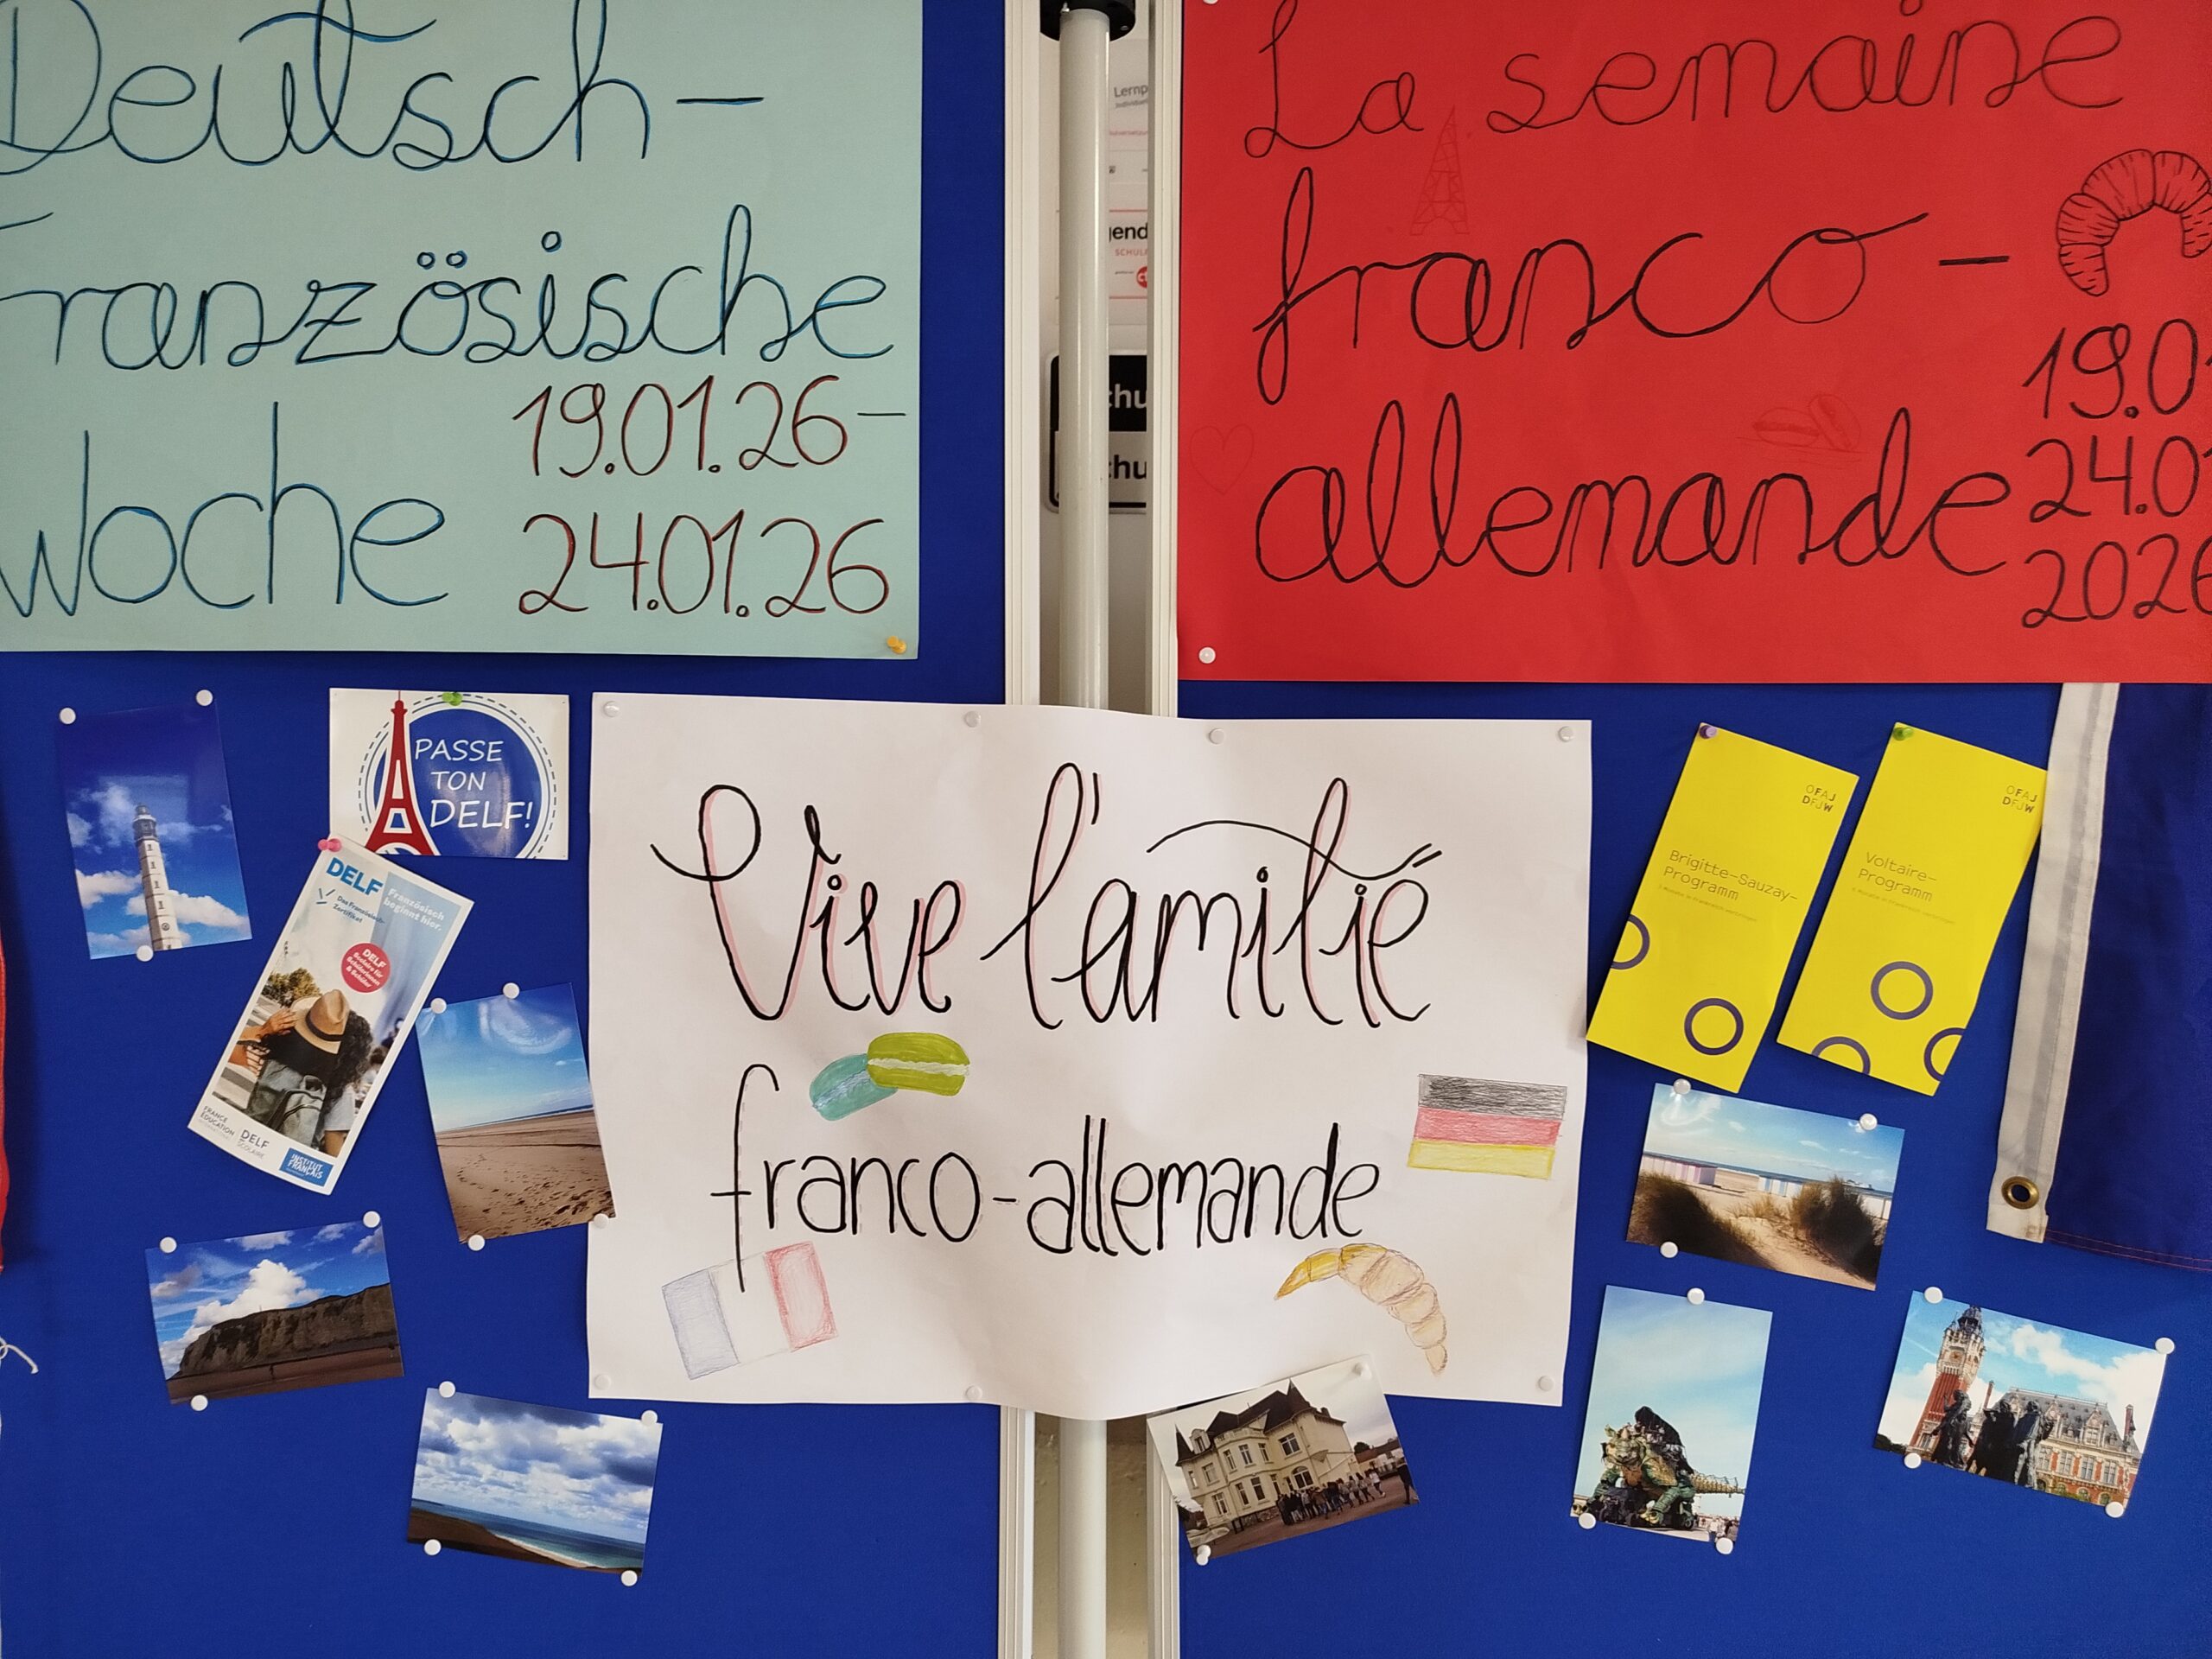 Deutsch-
Französische
Woche
19.01.26-
24.01.26
La semaine
franco-
allemande
19.01
24.01
2026
Lernp
gend
SCHULE
chu
chu
PASSE
TON
DELF!
DELF
Das Französisch-
Zertifikat
Französisch
beginnt hier.
DELF
Scolaire für
Schülerinnen
& Schüler
FRANCE
ÉDUCATION
DELF
SCOLAIRE
INSTITUT
FRANÇAIS
Vive l'amitié
franco-allemande
OFAJ
DFJW
Brigitte-Sauzay-
Programm
OFAJ
DFJW
Voltaire-
Programm